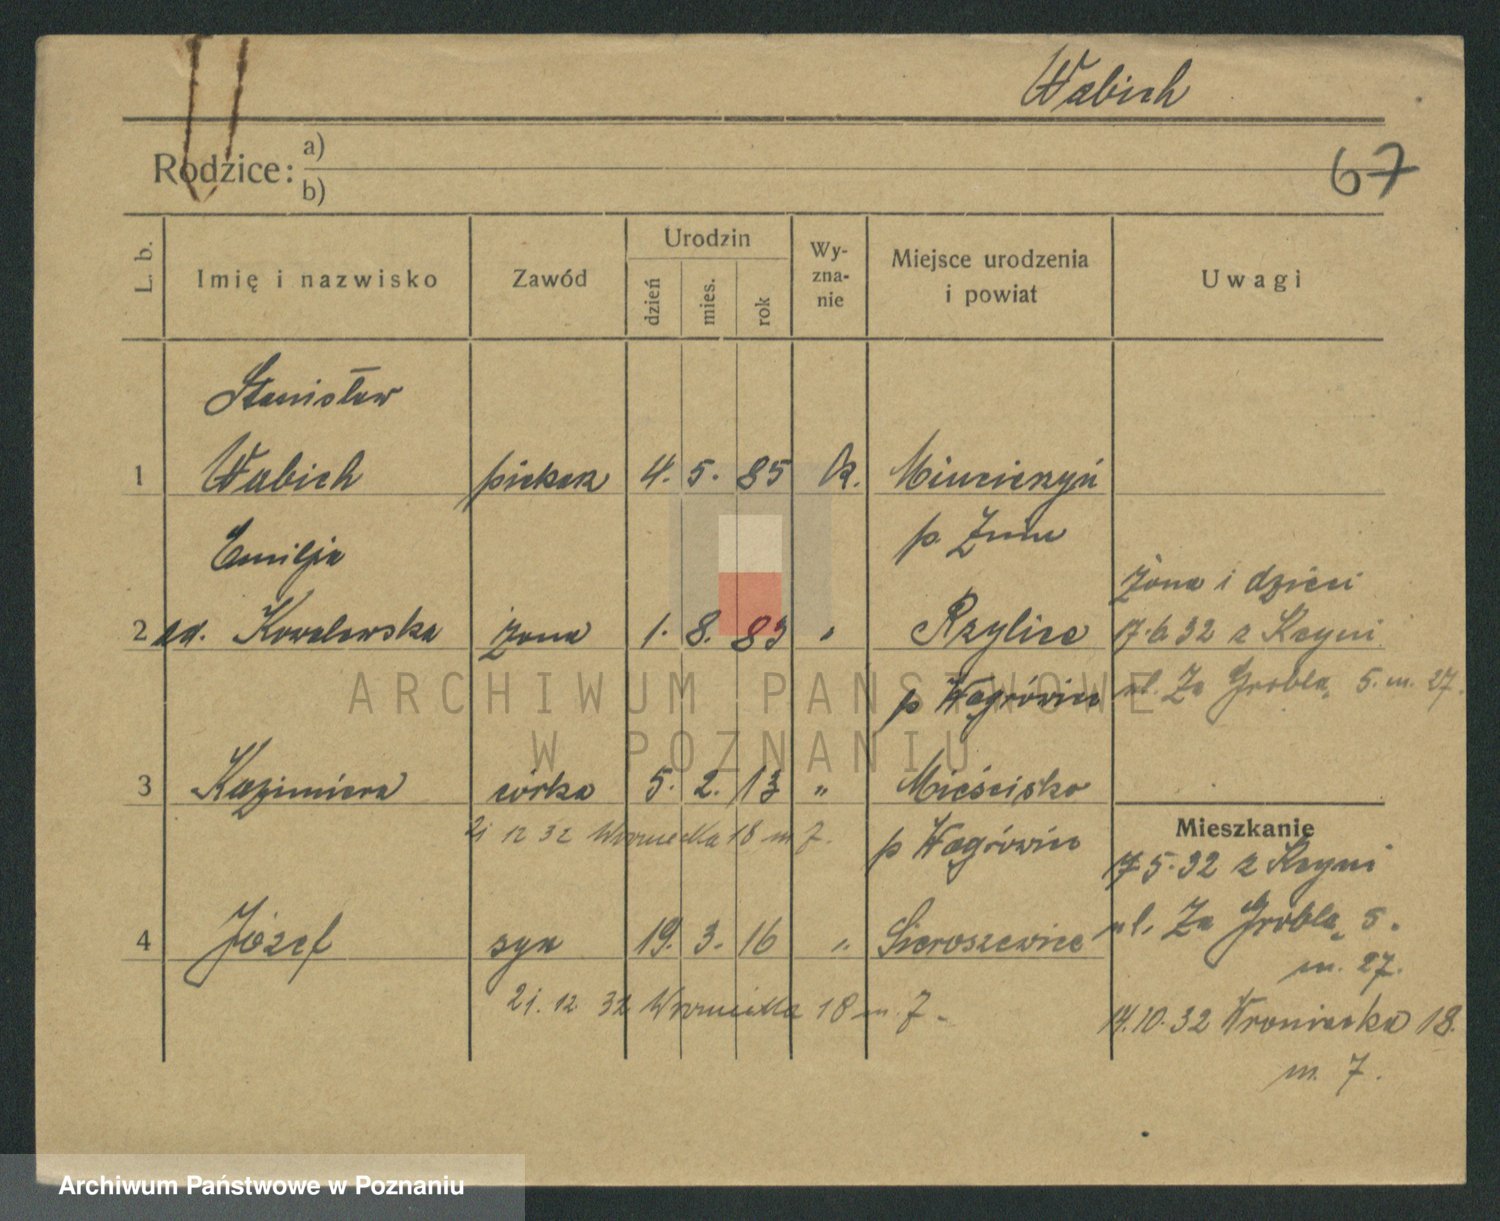 Wabich
Rodzice: a)
b)
67
L. b.
Imię i nazwisko
Zawód
Urodzin
dzień
mies.
rok
Wy-
zna-
nie
Miejsce urodzenia
i powiat
Uwagi
Stanisław
1 Wabich piekarz 4. 5. 85 k.
p. Żnin
Emilja
2 Kowalewska żona 1. 8. 83 "
p Wągrówiec
żona i dzieci
17.6.32 z Kcyni
ul. Za Groblą 5. m. 27.
3 Kazimiera córka 5. 2. 13 " Mieścisko
21 12 32 Wroniecka 18 m 7.
p Wągrówiec
4 Józef syn 19. 3. 16 " Sieroszewice
21. 12 32 Wroniecka 18 m. 7.
Mieszkanie
17.5.32 z Kcyni
ul. Za Groblą 5.
m. 27.
14.10.32 Wroniecka 18.
m. 7.
ARCHIWUM PAŃSTWOWE
W POZNANIU
Archiwum Państwowe w Poznaniu